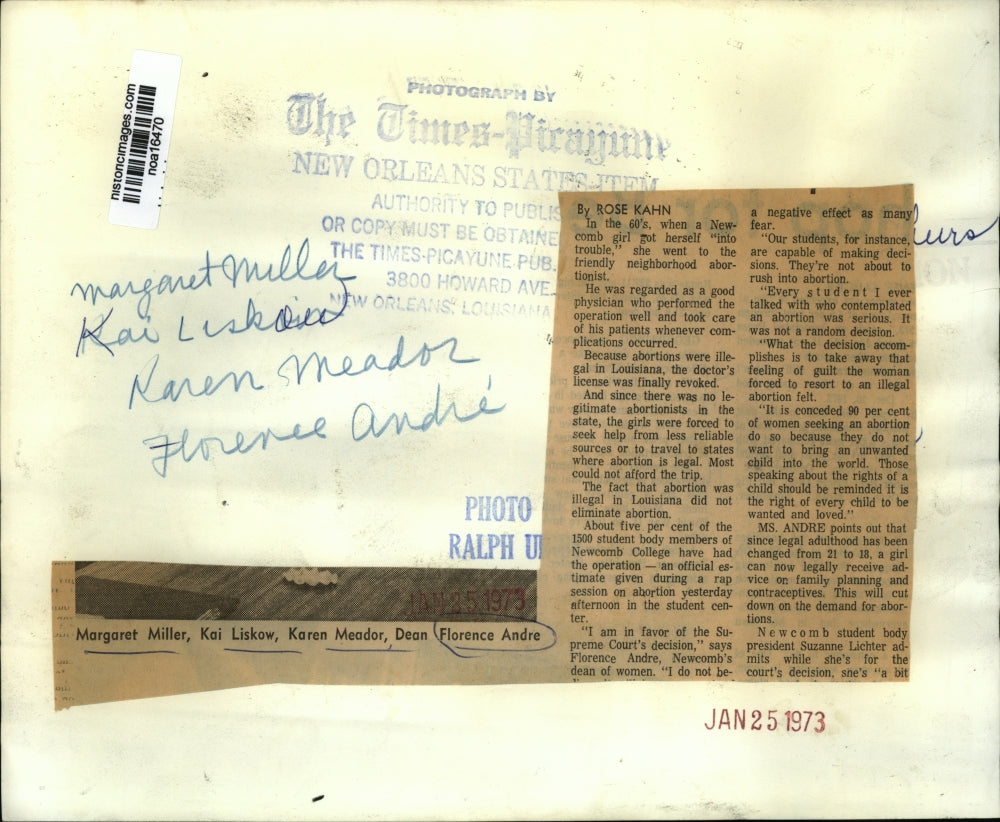 historicimages.com
noa16470
PHOTOGRAPH BY
The Times-Picayune
NEW ORLEANS STATES-ITEM
AUTHORITY TO PUBLIS
OR COPY MUST BE OBTAINE
THE TIMES-PICAYUNE PUB.
3800 HOWARD AVE.
NEW ORLEANS, LOUISIANA
Margaret Miller
Kai Liskow
Karen Meador
Florence André
PHOTO
RALPH U
JAN 25 1973
Margaret Miller, Kai Liskow, Karen Meador, Dean Florence Andre
By ROSE KAHN
In the 60's, when a New-
comb girl got herself "into
trouble," she went to the
friendly neighborhood abor-
tionist.
He was regarded as a good
physician who performed the
operation well and took care
of his patients whenever com-
plications occurred.
Because abortions were ille-
gal in Louisiana, the doctor's
license was finally revoked.
And since there was no le-
gitimate abortionists in the
state, the girls were forced to
seek help from less reliable
sources or to travel to states
where abortion is legal. Most
could not afford the trip.
The fact that abortion was
illegal in Louisiana did not
eliminate abortion.
About five per cent of the
1500 student body members of
Newcomb College have had
the operation — an official es-
timate given during a rap
session on abortion yesterday
afternoon in the student cen-
ter.
"I am in favor of the Su-
preme Court's decision," says
Florence Andre, Newcomb's
dean of women. "I do not be-
a negative effect as many
fear.
"Our students, for instance,
are capable of making deci-
sions. They're not about to
rush into abortion.
"Every student I ever
talked with who contemplated
an abortion was serious. It
was not a random decision.
"What the decision accom-
plishes is to take away that
feeling of guilt the woman
forced to resort to an illegal
abortion felt.
"It is conceded 90 per cent
of women seeking an abortion
do so because they do not
want to bring an unwanted
child into the world. Those
speaking about the rights of a
child should be reminded it is
the right of every child to be
wanted and loved."
MS. ANDRE points out that
since legal adulthood has been
changed from 21 to 18, a girl
can now legally receive ad-
vice on family planning and
contraceptives. This will cut
down on the demand for abor-
tions.
Newcomb student body
president Suzanne Lichter ad-
mits while she's for the
court's decision, she's "a bit
JAN 25 1973